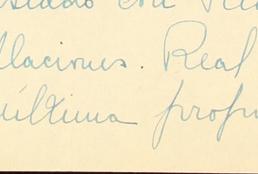 con
laciones. Real
última prop